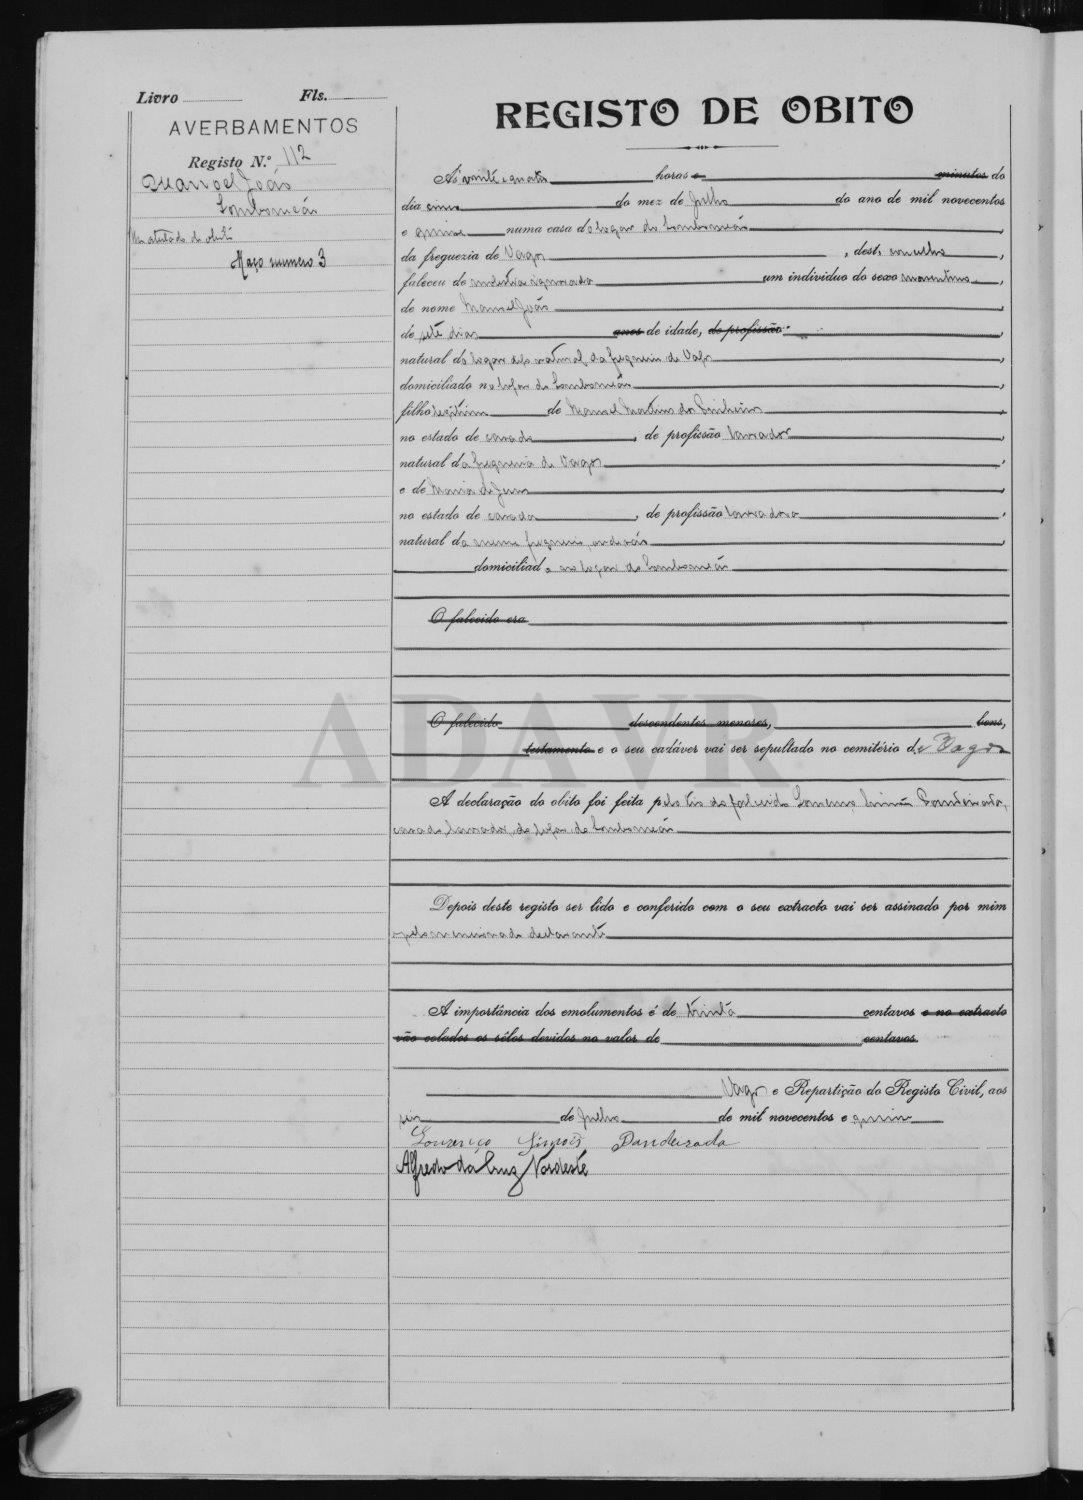 Livro Fls.
AVERBAMENTOS
Registo N.º 112
Manoel João
Lombomeão
Um atestado d obito
Maço numero 3
REGISTO DE OBITO
Ás vinte e quatro horas e minutos do
dia cinco do mez de Julho do ano de mil novecentos
e quinze numa casa do logar de Lombomeão,
da freguezia de Vagos, deste concelho,
faleceu de molestia ignorada um individuo do sexo masculino,
de nome Manoel João,
de sete dias anos de idade, de profissão,
natural do logar da freguezia de Vagos,
domiciliado no logar de Lombomeão,
filho legitimo de Manoel Martins do Pinheiro,
no estado de casado, de profissão lavrador,
natural da freguezia de Vagos,
e de Maria de Jesus,
no estado de casada, de profissão lavradora,
natural da mesma freguezia, onde são,
domiciliados no logar de Lombomeão
O falecido era
O falecido descendentes menores, bens,
testamento e o seu cadáver vai ser sepultado no cemitério de Vagos
A declaração do obito foi feita pelo tio do falecido Lourenço Simões Pandeirada,
casado, lavrador, do logar de Lombomeão
Depois deste registo ser lido e conferido com o seu extracto vai ser assinado por mim
e pelo mencionado declarante
A importância dos emolumentos é de trinta centavos e no extracto
vão colados os sêlos devidos no valor de centavos.
Vagos e Repartição do Registo Civil, aos
seis de Julho de mil novecentos e quinze
Lourenço Simões Pandeirada
Alfredo da Cruz Nordeste
ADAVR